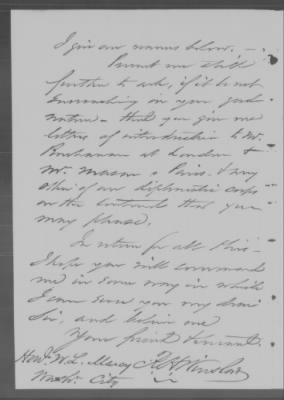 I give our names below. —
Permit me still
further to ask, if it be not
encroaching on your good
nature — that you give me
letters of introduction to Mr.
Buchanan at London &
Mr. Mason at Paris & any
other of our diplomatic corps
on the continent that you
may please.
In return for all this —
I hope you will command
me in some way in which
I can serve you my dear
Sir, and believe me
Your friend & servant.
Hon. W. L. Marcy
Washn. City